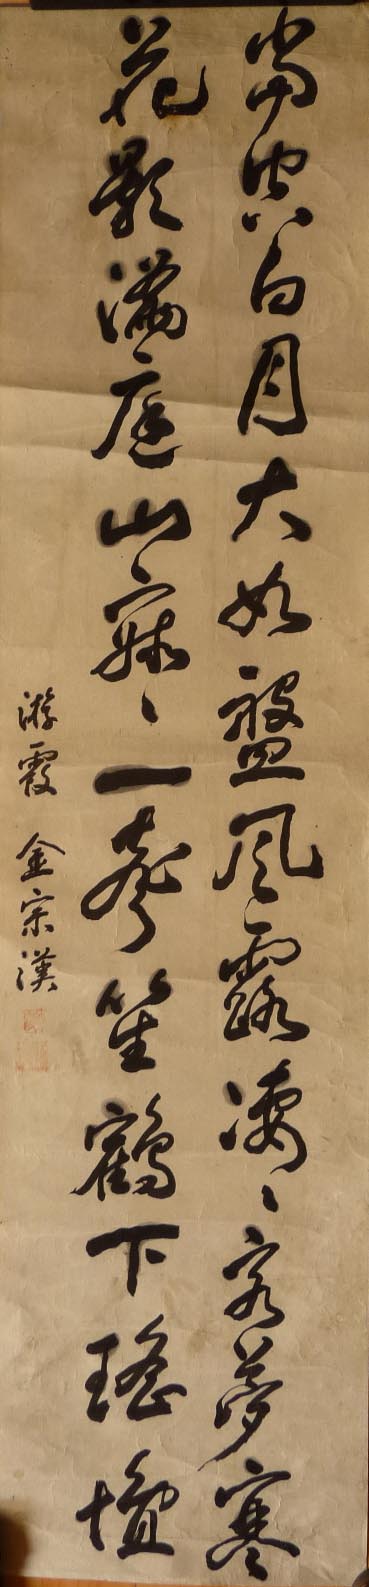 當空白月大如盤風露凄〻客夢寒
花影滿庭山寂〻一聲笙鶴下瑤壇
游霞 金宗漢